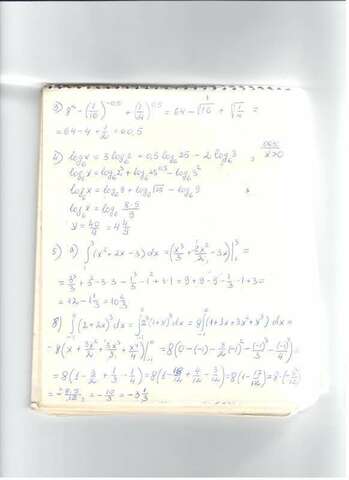 3) 8² - (1/10)^-0,5 + (1/4)^0,5 = 64 - √10 + √1/4 =
= 64 - 4 + 1/2 =
4) log₆x = 3log₆2 + 0,5 log₆25 - 2 log₆3
x>0
log₆x = log₆2³ + log₆25^0,5 - log₆3²
log₆x = log₆8 + log₆√25 - log₆9
log₆x = log₆ 8·5/9
x = 40/9 = 4 4/9
5) a) ∫₁³ (x² + 2x - 3) dx = (x³/3 + 2x²/2 - 3x)|₁³ =
= 3³/3 + 3² - 3·3 - 1³/3 - 1² + 3·1 = 9 + 9 - 9 - 1/3 - 1 + 3 =
= 12 - 1 1/3 = 10 2/3
∫₋₁⁰ (2+2x)³ dx = ∫₋₁⁰ 2³(1+x)³ dx = 8∫(1+3x+3x²+x³) dx =
= 8(x + 3x²/2 + 3x³/3 + x⁴/4)|₋₁⁰ = 8(0-(-1) - 3/2(-1)² - (-1)³/3 - (-1)⁴/4) =
= 8(1 - 3/2 + 1/3 - 1/4) = 8(1 - 18/12 + 4/12 - 3/12) = 8(1 - 17/12) = 8·(-5/12) =
= - 10/3 = -3 1/3